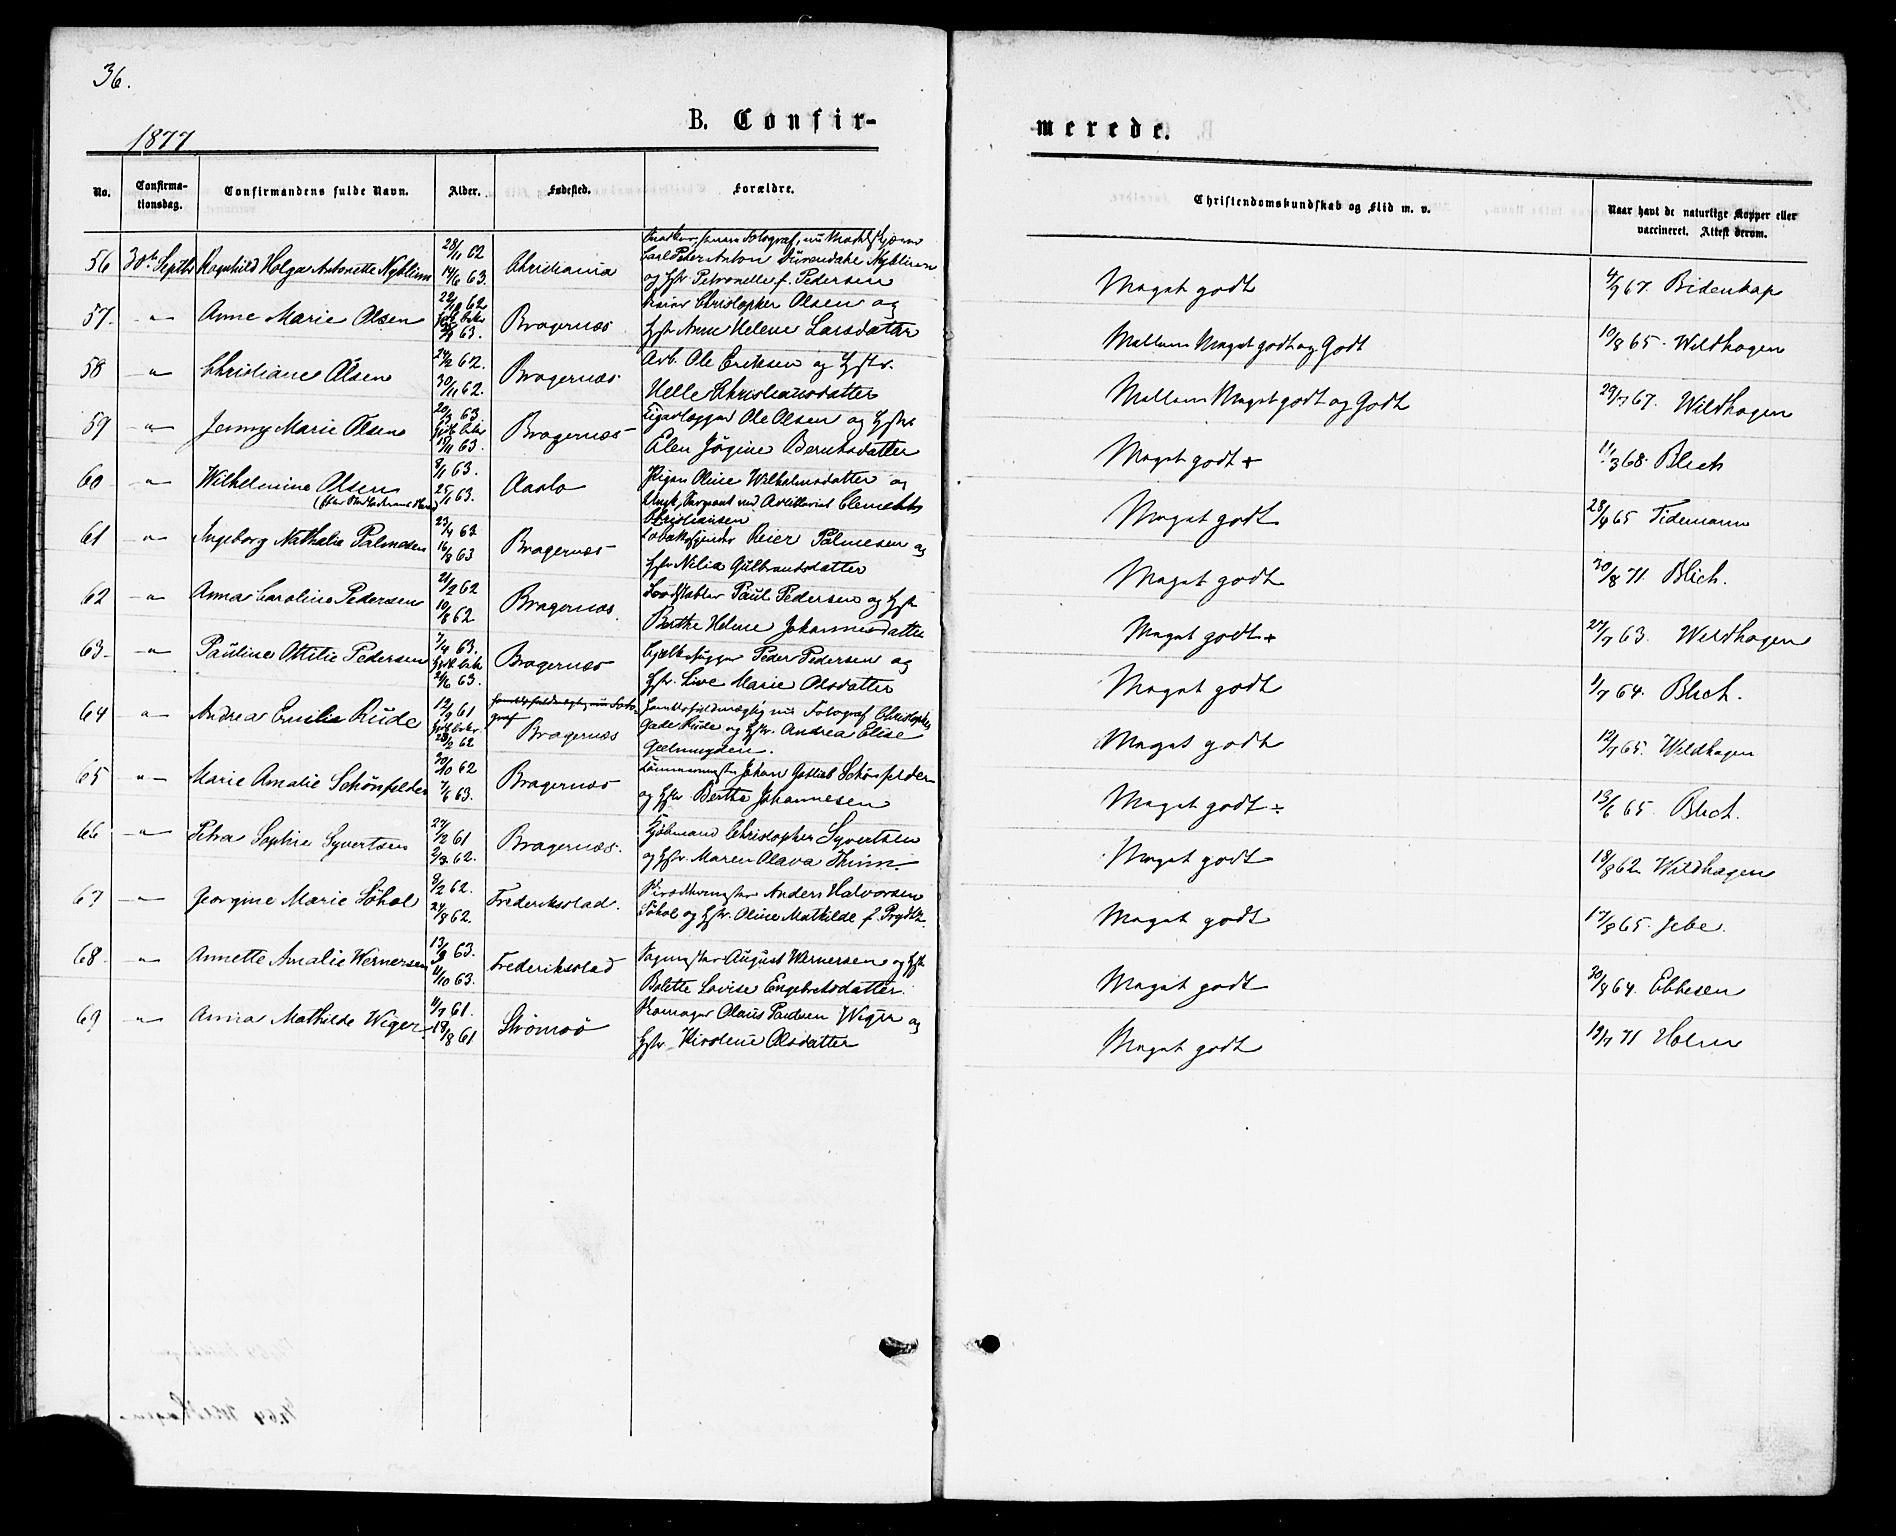 36.
1877
B. Confir-
merede.
No.
Confirma-
tionsdag.
Confirmandens fulde Navn.
Alder.
Fødested.
Forældre.
Christendomskundskab og Flid m. v.
Naar havt de naturlige Kopper eller
vaccineret. Attest derom.
56 30te Septbr Ragnhild Helga Antonette Nyblin 28/11 62 14/6 63. Christiania
Carl Peter Anton Nyblin
og Hstr. Petronelle f. Pedersen
Meget godt 4/7 67. Bidenkap
57. -"- Anne Marie Olsen 62 63. Bragernæs
Christopher Olsen og
Hstr Anne Helene Larsdatter
Mellem Meget godt og Godt 10/8 65. Wildhagen
58 -"- Christiane Olsen 24/2 62. 30/11 62. Bragernæs
Arb. Ole Eriksen og Hstr.
Helle Christiansdatter
Mellem Meget godt og Godt 29/7 67. Wildhagen
59 -"- Jenny Marie Olsen 20/3 63 63. Bragernæs
Ole Olsen og Hstr
Elen Jørgine Berntsdatter
Meget godt + 11/3 68. Blich
60 -"- Wilhelmine Olsen 9/1 63. 25/1 63. Aaslo
Pigen Oline Wilhelmsdatter og
Ungk. Sergeant ved Artilleriet Clemet
Christiansen
Meget godt 28/9 65 Tidemann
61 -"- Ingeborg Nathalia Palmesen 23/4 63 16/8 63 Bragernæs
Reier Palmesen og
Hstr Nilia Gulbrandsdatter
Meget godt 30/8 71. Blich.
62 -"- Anna Caroline Pedersen 21/2 62 10/8 62. Bragernæs.
Bordstabler Paul Pedersen og Hstr
Berthe Helene Johannesdatter
Meget godt + 27/7 63. Wildhagen
63. -"- Pauline Ottilie Pedersen 7/4 63. 21/6 63. Bragernæs
Peder Pedersen og
Hstr. Live Marie Olsdatter
Meget godt 1/7 64. Blich.
64 -"- Andrea Emilie Rude 12/9 61 23/2 62 Bragernæs
nu Fotograf Christopher
Gade Rude og Hstr. Andrea Elise
Meget godt 12/7 65. Wildhagen
65 -"- Marie Amalie Schønfelder 30/10 62 7/6 63. Bragernæs
Johan Gotlieb Schønfelder
og Hstr Berthe Johannesen
Meget godt ÷ 13/6 65. Blich.
66 -"- Petra Sophie Syvertsen 27/12 61 2/3 62. Bragernæs.
Kjøbmand Christopher Syvertsen
og Hstr. Maren Olava Thim
Meget godt 18/8 62 Wildhagen
67 -"- Georgine Marie Søhol 8/2 62. 24/8 62. Frederikstad.
Anders Halvorsen
Søhol og Hstr. Oline Mathilde f. Prydtz.
Meget godt 17/8 65. Jebe.
68. -"- Annette Amalie Wernersen 13/3 63. 11/10 63. Frederikstad
August Wernersen og Hstr
Bolette Lovise Engebretsdatter.
Meget godt 30/9 64. Ebbesen
69 -"- Anna Mathilde Wiger. 11/7 61. 18/8 61 Strømsø
Olaus Paulsen Wiger og
Hstr. Kirstine Olsdatter
Meget godt 19/7 71 Holm